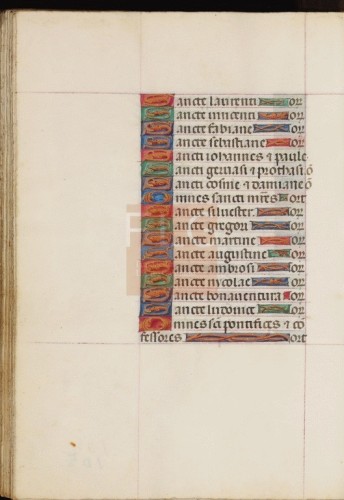 Sancte laurenti or
Sancte vincenti or
Sancte fabiane or
Sancte sebastiane or
Sancti iohannes & paule
Sancti geruasi & prothasi o
Sancti cosme & damiane o
Omnes sancti mres ort
Sancte siluester or
Sancte gregori or
Sancte martine or
Sancte augustine or
Sancte ambrosi or
Sancte nicolae or
Sancte bonauentura or
Sancte ludouice or
Omnes sci pontifices & co
fessores ort